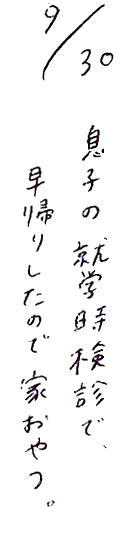 9/30
息子の就学時検診で、
早帰りしたので家おやつ。